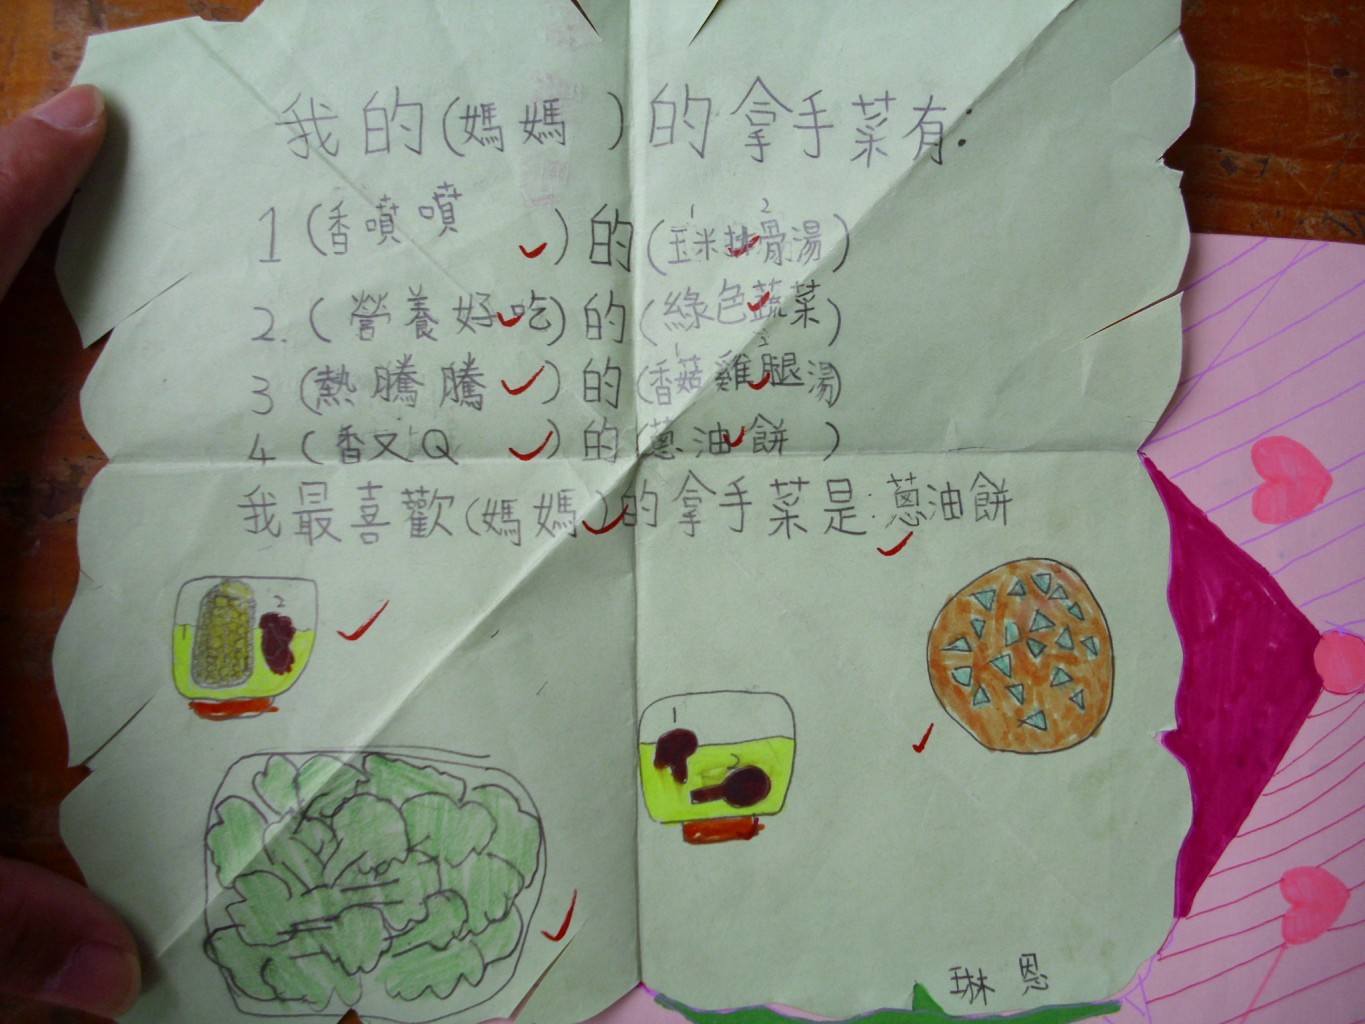 我的(媽媽)的拿手菜有:
1(香噴噴)的(玉米排骨湯)
1 2
2.(營養好吃)的(綠色蔬菜)
3(熱騰騰)的(香菇雞腿湯)
1 2
4(香又Q)的(蔥油餅)
我最喜歡(媽媽)的拿手菜是:蔥油餅
1 2
1
2
琳恩